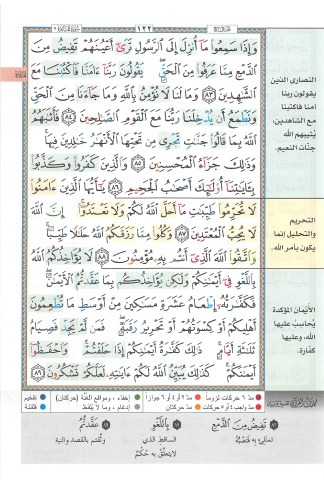 ١٢٢
وَإِذَا سَمِعُوا۟ مَآ أُنزِلَ إِلَى ٱلرَّسُولِ تَرَىٰٓ أَعْيُنَهُمْ تَفِيضُ مِنَ
ٱلدَّمْعِ مِمَّا عَرَفُوا۟ مِنَ ٱلْحَقِّ ۖ يَقُولُونَ رَبَّنَآ ءَامَنَّا فَٱكْتُبْنَا مَعَ
ٱلشَّٰهِدِينَ ٨٣ وَمَا لَنَا لَا نُؤْمِنُ بِٱللَّهِ وَمَا جَآءَنَا مِنَ ٱلْحَقِّ
وَنَطْمَعُ أَن يُدْخِلَنَا رَبُّنَا مَعَ ٱلْقَوْمِ ٱلصَّٰلِحِينَ ٨٤ فَأَثَٰبَهُمُ
ٱللَّهُ بِمَا قَالُوا۟ جَنَّٰتٍ تَجْرِى مِن تَحْتِهَا ٱلْأَنْهَٰرُ خَٰلِدِينَ فِيهَا ۚ
وَذَٰلِكَ جَزَآءُ ٱلْمُحْسِنِينَ ٨٥ وَٱلَّذِينَ كَفَرُوا۟ وَكَذَّبُوا۟
بِـَٔايَٰتِنَآ أُو۟لَٰٓئِكَ أَصْحَٰبُ ٱلْجَحِيمِ ٨٦ يَٰٓأَيُّهَا ٱلَّذِينَ ءَامَنُوا۟
لَا تُحَرِّمُوا۟ طَيِّبَٰتِ مَآ أَحَلَّ ٱللَّهُ لَكُمْ وَلَا تَعْتَدُوٓا۟ ۚ إِنَّ ٱللَّهَ
لَا يُحِبُّ ٱلْمُعْتَدِينَ ٨٧ وَكُلُوا۟ مِمَّا رَزَقَكُمُ ٱللَّهُ حَلَٰلًا طَيِّبًا ۚ
وَٱتَّقُوا۟ ٱللَّهَ ٱلَّذِىٓ أَنتُم بِهِۦ مُؤْمِنُونَ ٨٨ لَا يُؤَاخِذُكُمُ ٱللَّهُ
بِٱللَّغْوِ فِىٓ أَيْمَٰنِكُمْ وَلَٰكِن يُؤَاخِذُكُم بِمَا عَقَّدتُّمُ ٱلْأَيْمَٰنَ ۖ
فَكَفَّٰرَتُهُۥٓ إِطْعَامُ عَشَرَةِ مَسَٰكِينَ مِنْ أَوْسَطِ مَا تُطْعِمُونَ
أَهْلِيكُمْ أَوْ كِسْوَتُهُمْ أَوْ تَحْرِيرُ رَقَبَةٍ ۖ فَمَن لَّمْ يَجِدْ فَصِيَامُ
ثَلَٰثَةِ أَيَّامٍ ۚ ذَٰلِكَ كَفَّٰرَةُ أَيْمَٰنِكُمْ إِذَا حَلَفْتُمْ ۚ وَٱحْفَظُوٓا۟
أَيْمَٰنَكُمْ ۚ كَذَٰلِكَ يُبَيِّنُ ٱللَّهُ لَكُمْ ءَايَٰتِهِۦ لَعَلَّكُمْ تَشْكُرُونَ ٨٩
النصارى الذين
يقولون ربنا
آمنا فاكتبنا
مع الشاهدين،
يُثيبهم الله
جنات النعيم.
التحريم
والتحليل إنما
يكون بأمر الله.
الأيمان المؤكدة
يُحاسِبُ عليها
الله، وعليها
كفارة.
مدّ ٦ حركات لزوماً
مدّ ٢ أو ٤ أو ٦ جوازاً
إخفاء، ومواقع الغُنَّة (حركتان)
تفخيم
مدّ واجب ٤ أو ٥ حركات
مدّ حركتان
إدغام، وما لا يُلفَظ
قلقلة
٨٣ تَفِيضُ مِنَ ٱلدَّمْعِ
تمتلئ به فتصبّه
٨٩ بِٱللَّغْوِ
الساقط الذي
لا يتعلّق به حُكْم
٨٩ عَقَّدتُّمُ
وثّقتم بالقصد والنية